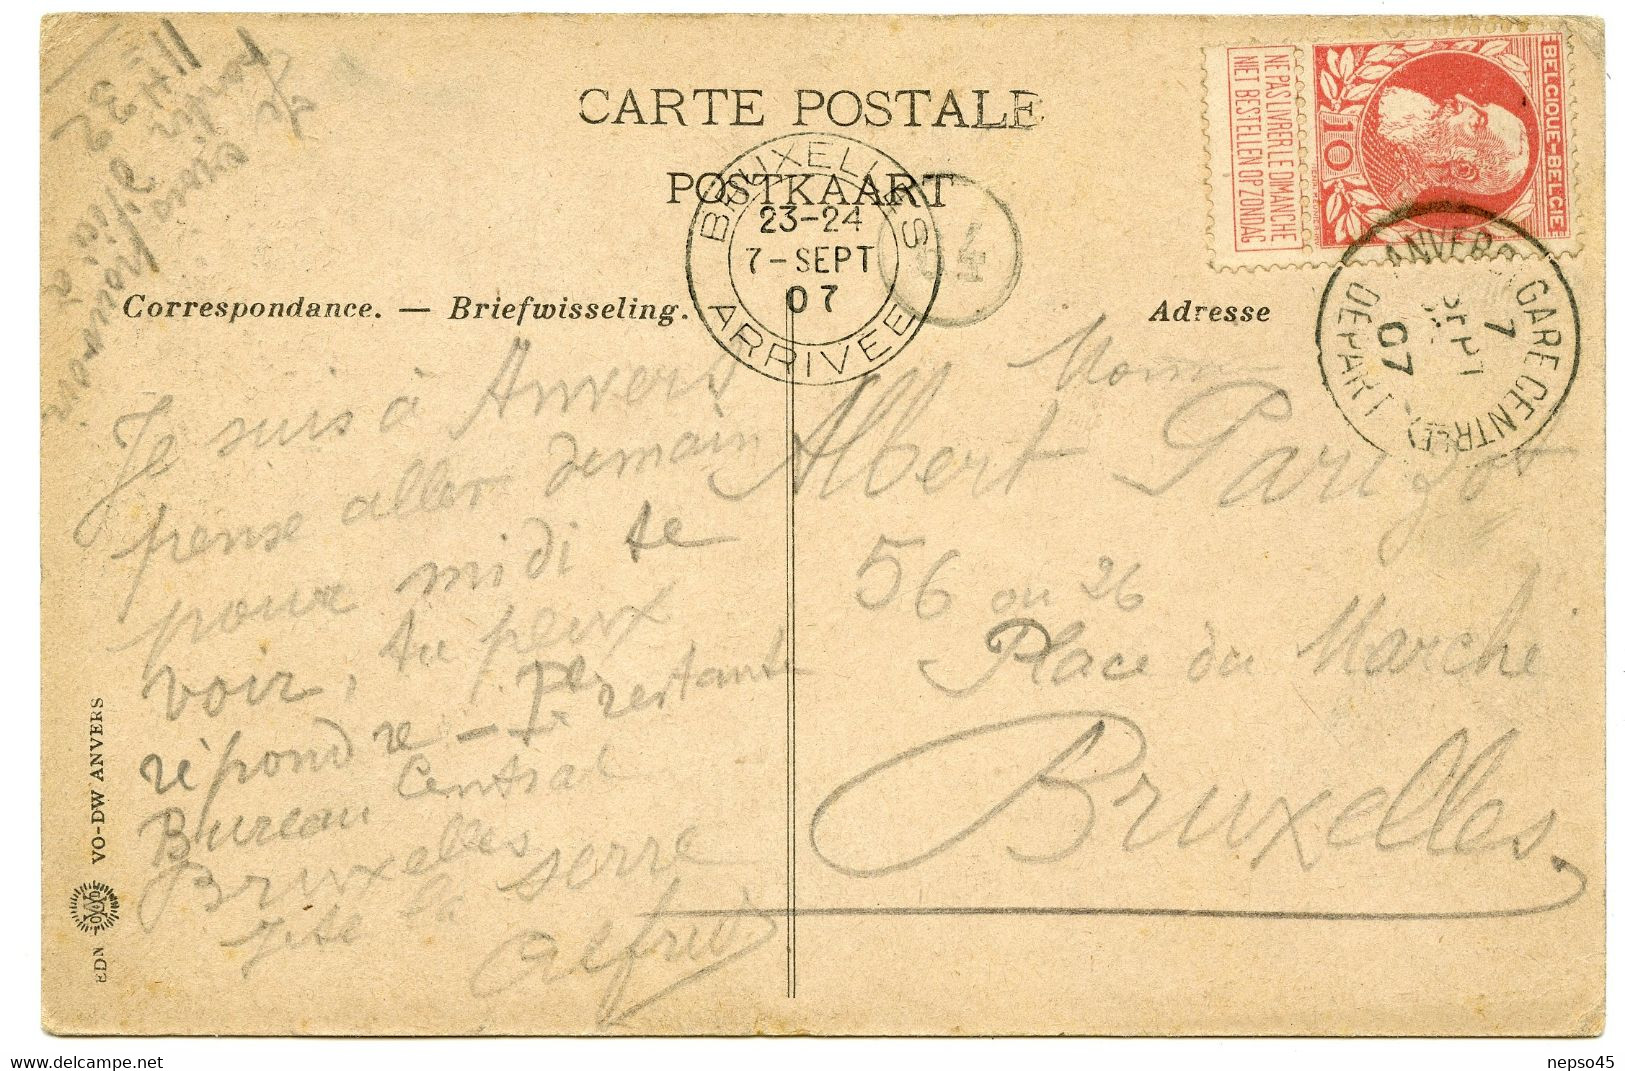 CARTE POSTALE
POSTKAART
Correspondance. — Briefwisseling.
Adresse
BELGIQUE-BELGIE
10
NE PAS LIVRER LE DIMANCHE
NIET BESTELLEN OP ZONDAG
BRUXELLES
23-24
7-SEPT
07
ARRIVEE
ANVERS GARE CENTRALE
7
SEPT
07
DEPART
Je suis à Anvers
pense aller demain
pour midi te
voir, tu peux
répondre - Pte restante
Bureau Central
Bruxelles
Je te la serre
Alfred
11 H 32
Albert Parizot
56 ou 26
Place du Marché
Bruxelles
EDN VO-DW ANVERS
nepso45